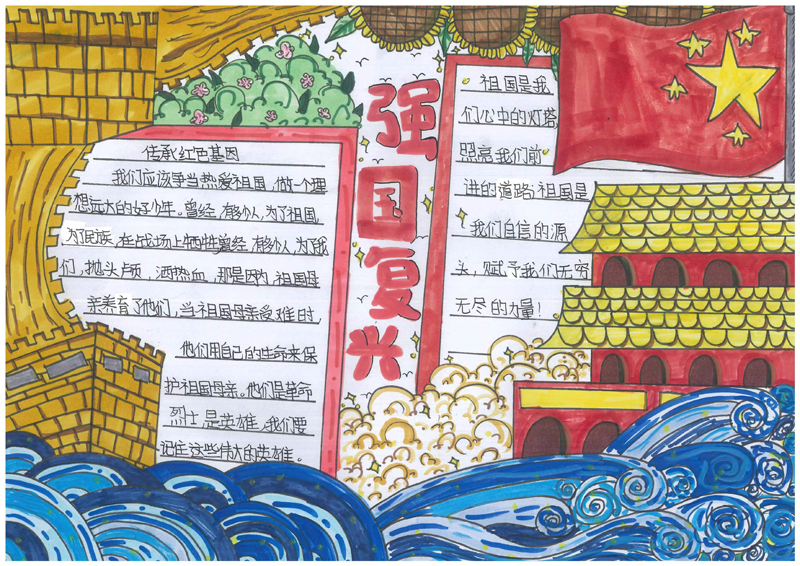 强国复兴
传承红色基因
我们应该争当热爱祖国,做一个理
想远大的好少年。曾经,有多少人,为了祖国,
为了民族,在战场上牺牲曾经,有多少人,为了我
们,抛头颅,洒热血,那是因为,祖国母
亲养育了他们,当祖国母亲受难时,
他们用自己的生命来保
护祖国母亲。他们是革命
烈士,是英雄,我们要
记住这些伟大的英雄。
祖国是我
们心中的灯塔
照亮我们前
进的道路,祖国是
我们自信的源
头,赋予我们无穷
无尽的力量!